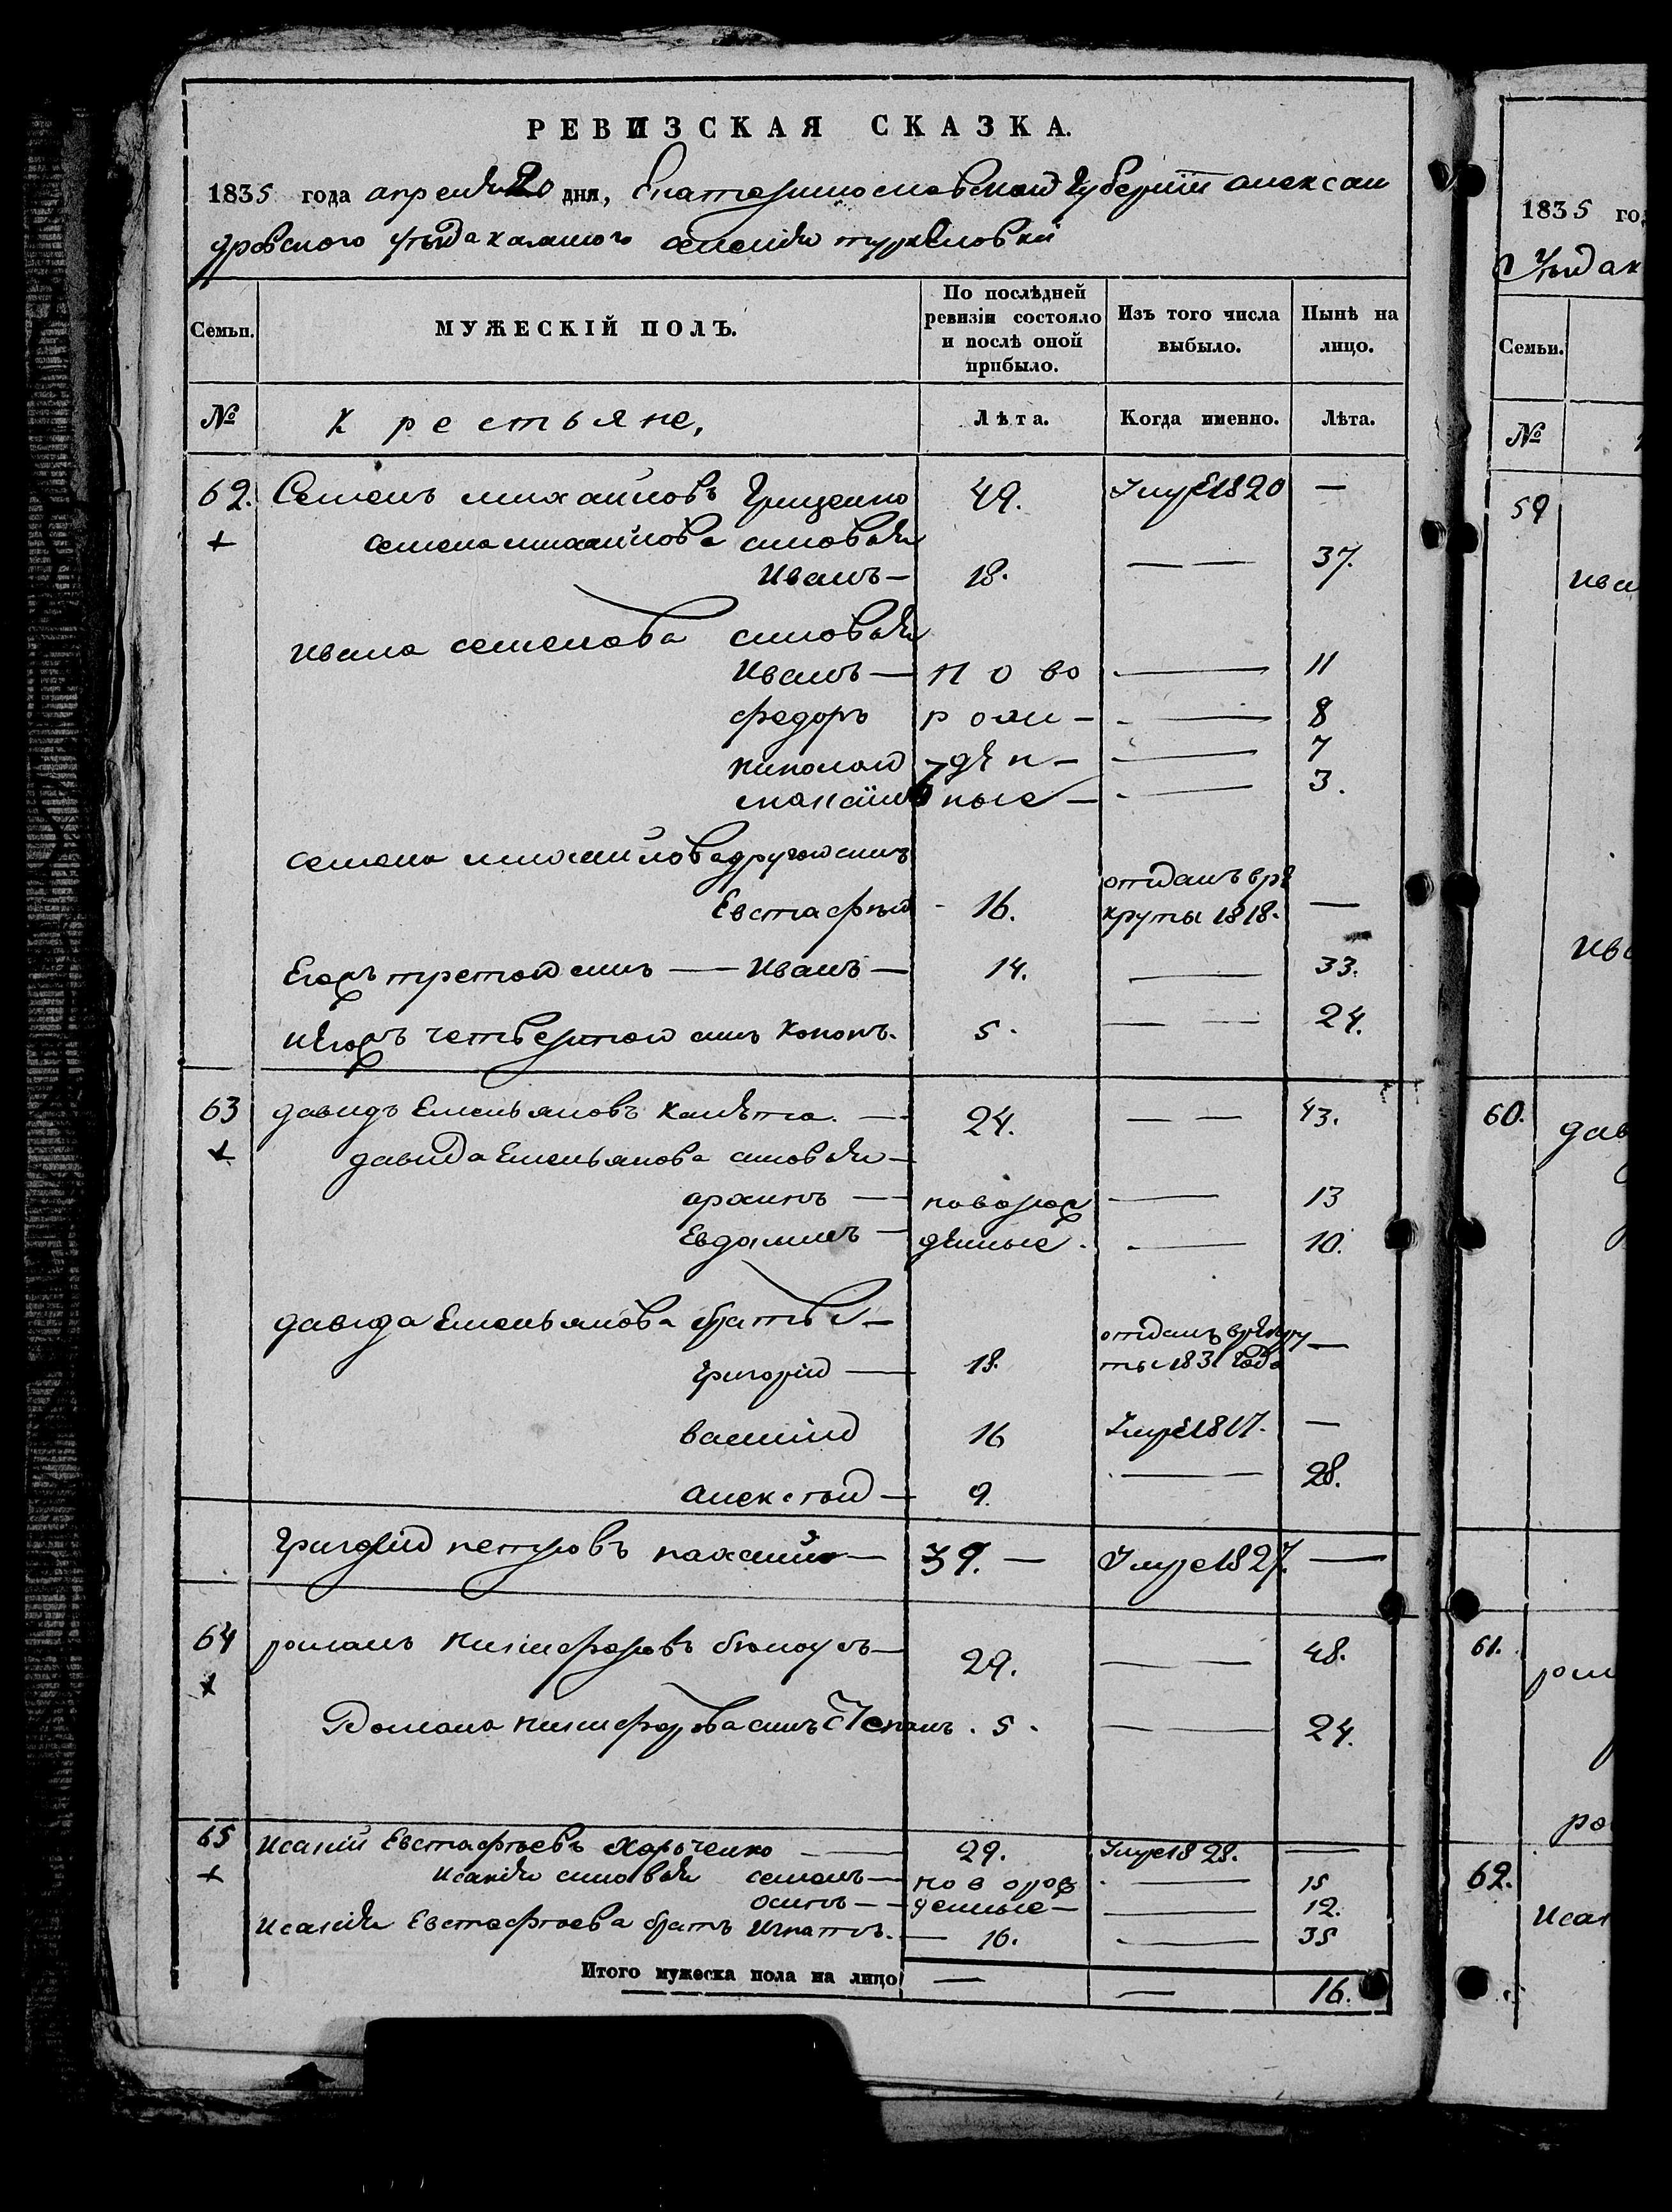 РЕВИЗСКАЯ СКАЗКА.
1835 года апреля 20 дня, Екатеринославской Губернiи алексан
дровского уѣзда казенного селенiя
Семьи. МУЖЕСКІЙ ПОЛЪ. По послѣдней ревизіи состояло и послѣ оной прибыло. Изъ того числа выбыло. Нынѣ на лицо.
№ Крестьяне, Лѣта. Когда именно. Лѣта.
62. Семенъ михайловъ Гриценко 49. Умре 1820 —
семена михайлова сыновья
Иванъ — 18. — — 37.
ивана семенова сыновья
Иванъ — н о во — 11
федоръ рож - — 8
николай - де н - — 7
максимъ ные — — 3.
семена михайлова другой сынъ
Евстафѣй - 16. отданъ врѣ
круты 1818. —
Егожъ третой сынъ — Иванъ — 14. — 33.
иЕгожъ четвертой сынъ Кононъ. 5. — — 24.
63 давидъ Емельяновъ — 24. — — 43.
давида Емельянова сыновья —
архипъ — новорож — 13
Евдокимъ — денные. — 10.
давида Емельянова братья —
Григорiй — 18. отданъ врекру
ты 1831 года —
василiй 16 Умре 1817. —
алексѣй — 9. — 28.
Григорiй петровъ 39. — Умре 1827. —
64 романъ никифоровъ бѣлоусъ — 29. — — 48.
Романа никифорова сынъ Степанъ. 5. — — 24.
65 Исакiй Евстафѣевъ Харченко — 29. Умре 1828. —
Исакiя сыновья семенъ — новорож — 15
осипъ — денные — — 12.
Исакiя Евстафѣева братъ Игнатъ. — 16. — 35
Итого мужеска пола на лицо — — 16.
1835 го
Уѣзда к
Семьи.
№
59
ива
ива
60. дав
61. ром
ро
62. Исак